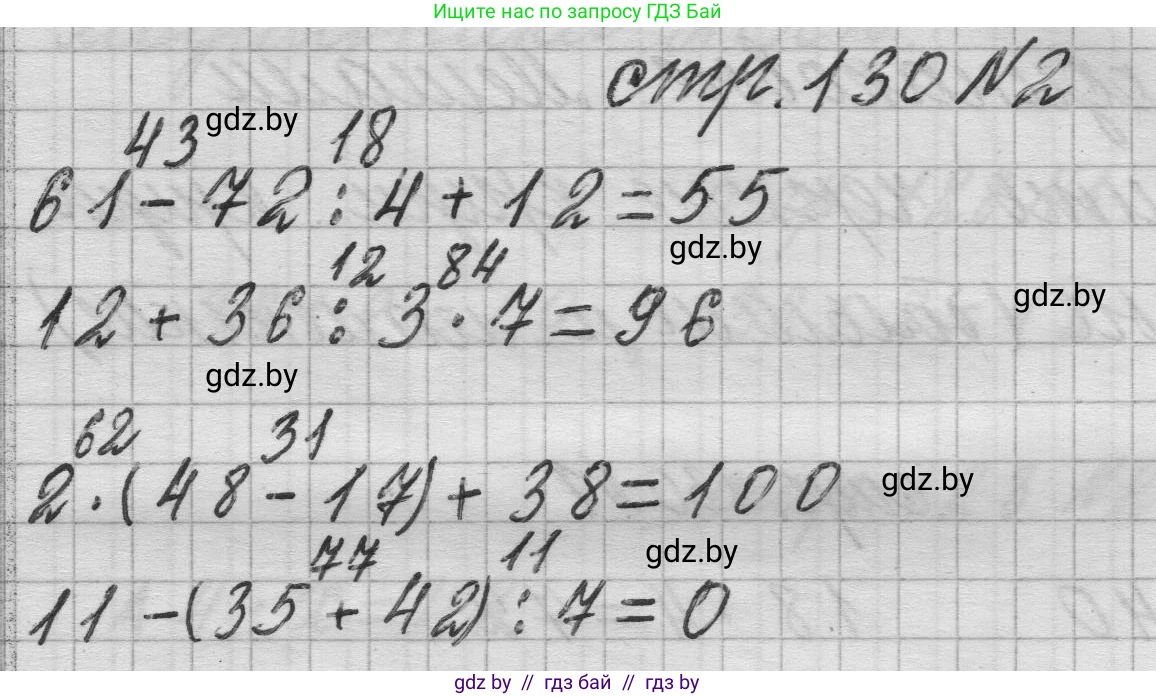 Ищите нас по запросу ГДЗ Бай
стр. 130 N2
43 gdz.by 18
61 - 72 : 4 + 12 = 55
gdz.by
12 84
gdz.by
12 + 36 : 3 · 7 = 96
gdz.by
62 31
2 · (48 - 17) + 38 = 100 gdz.by
77 11 gdz.by
11 - (35 + 42) : 7 = 0
gdz by // гдз бай // гдз by